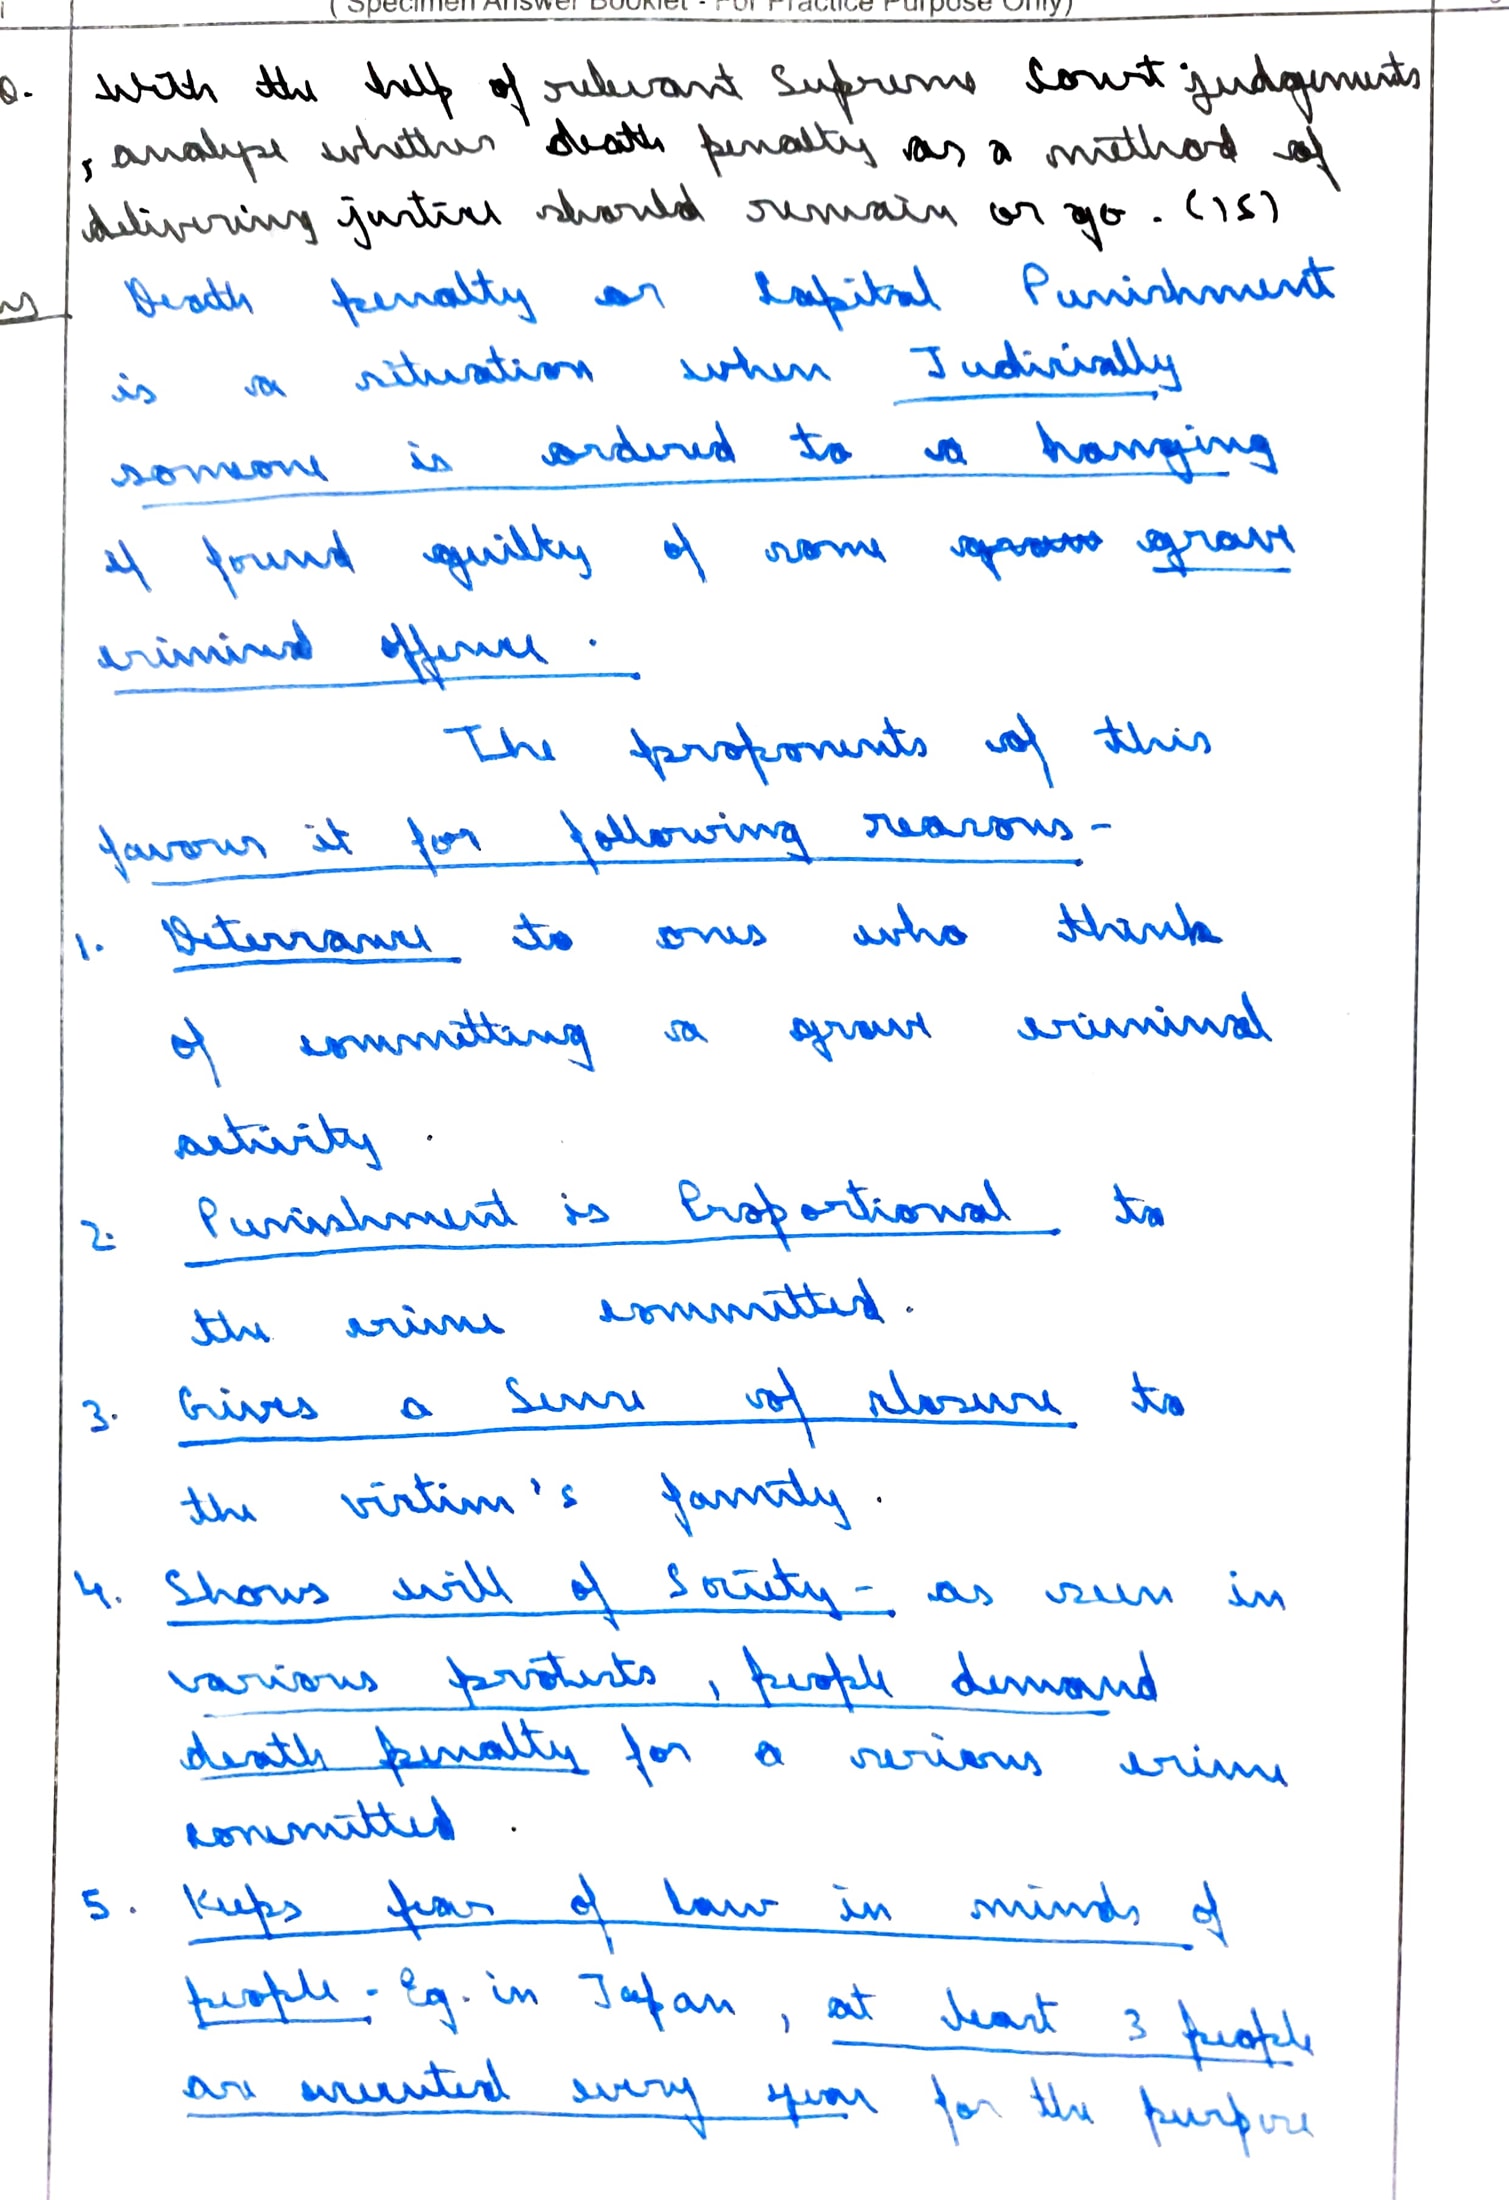 ( Specimen Answer Booklet - For Practice Purpose Only)
Q. With the help of relevant Supreme Court judgements
, analyse whether death penalty as a method of
delivering justice should remain or go. (15)
Ans Death penalty or Capital Punishment
is a situation when Judicially
someone is ordered to a hanging
if found guilty of some grave
criminal offence.
The proponents of this
favour it for following reasons-
1. Deterrance to ones who think
of committing a grave criminal
activity.
2. Punishment is Proportional to
the crime committed.
3. Gives a Sense of closure to
the victim's family.
4. Shows will of Society - as seen in
various protests, people demand
death penalty for a serious crime
committed.
5. Keeps fear of law in minds of
people - Eg. in Japan, at least 3 people
are executed every year for the purpose